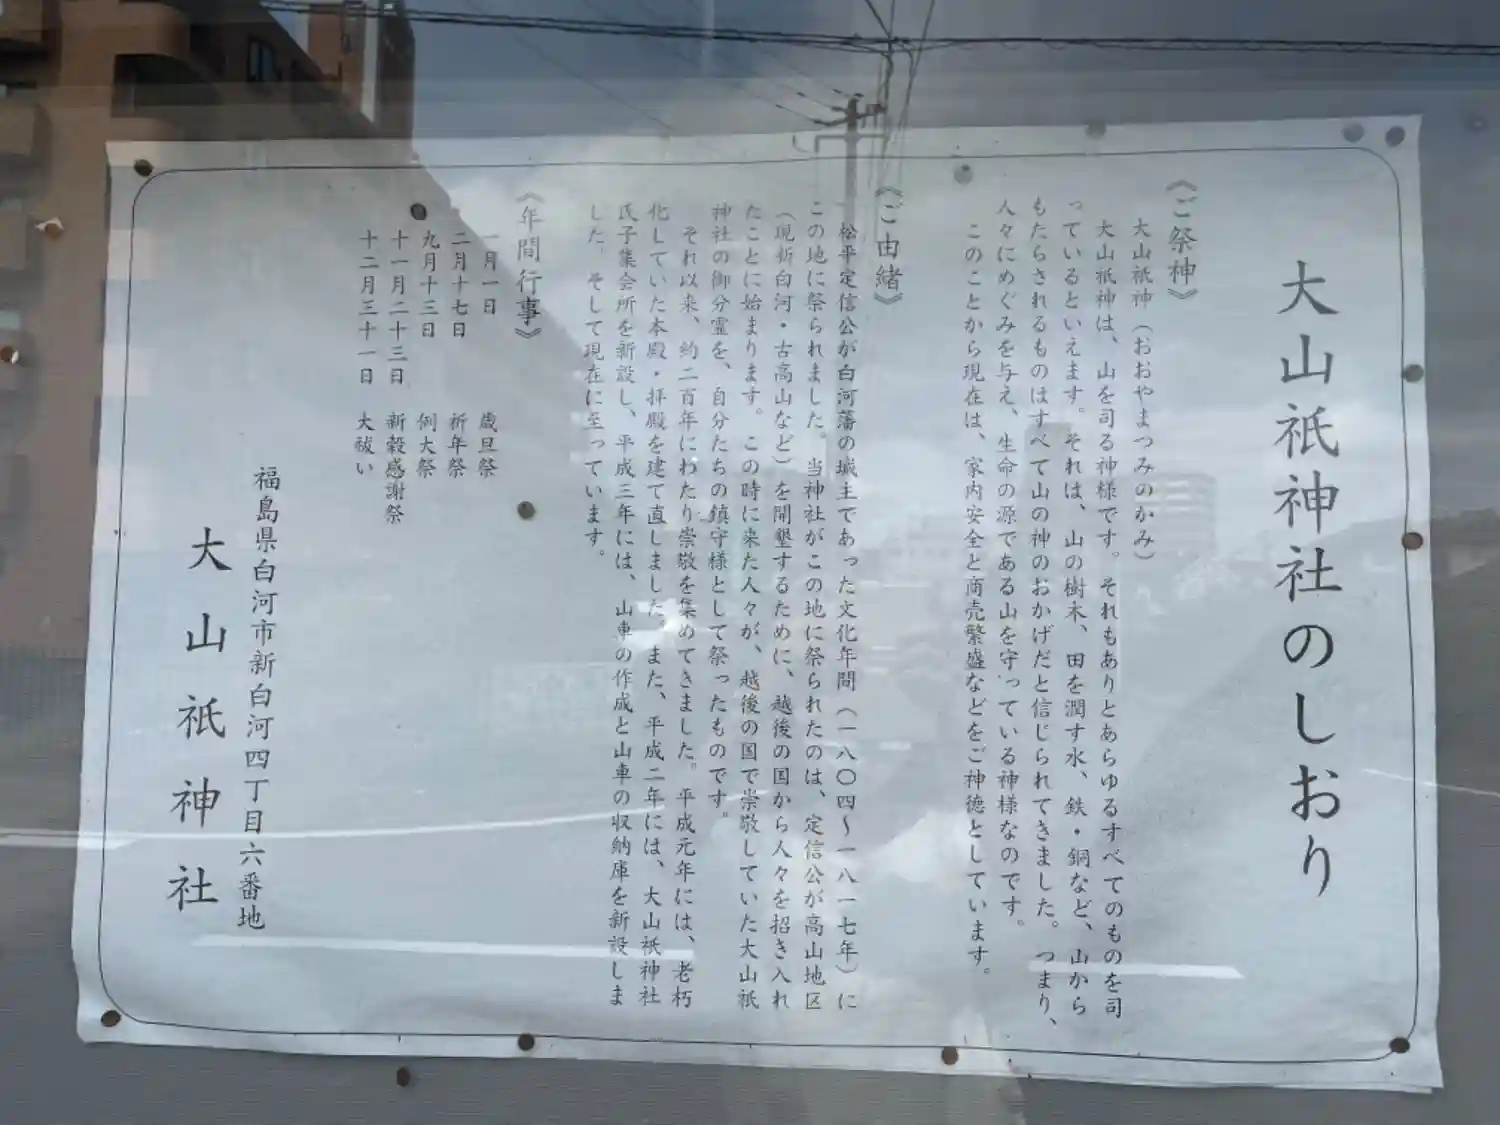 大山祇神社のしおり
《ご祭神》
大山祇神（おおやまつみのかみ）
大山祇神は、山を司る神様です。それもありとあらゆるすべてのものを司
っているといえます。それは、山の樹木、田を潤す水、鉄・銅など、山から
もたらされるものはすべて山の神のおかげだと信じられてきました。つまり、
人々にめぐみを与え、生命の源である山を守っている神様なのです。
このことから現在は、家内安全と商売繁盛などをご神徳としています。
《ご由緒》
松平定信公が白河藩の城主であった文化年間（一八〇四～一八一七年）に
この地に祭られました。当神社がこの地に祭られたのは、定信公が高山地区
（現新白河・古高山など）を開墾するために、越後の国から人々を招き入れ
たことに始まります。この時に来た人々が、越後の国で崇敬していた大山祇
神社の御分霊を、自分たちの鎮守様として祭ったものです。
それ以来、約二百年にわたり崇敬を集めてきました。平成元年には、老朽
化していた本殿・拝殿を建て直しました。また、平成二年には、大山祇神社
氏子集会所を新設し、平成三年には、山車の作成と山車の収納庫を新設しま
した。そして現在に至っています。
《年間行事》
一月一日　歳旦祭
二月十七日　祈年祭
九月十三日　例大祭
十一月二十三日　新穀感謝祭
十二月三十一日　大祓い
福島県白河市新白河四丁目六番地
大山祇神社